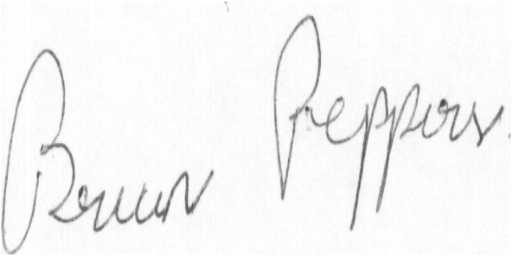 Brown Peppers